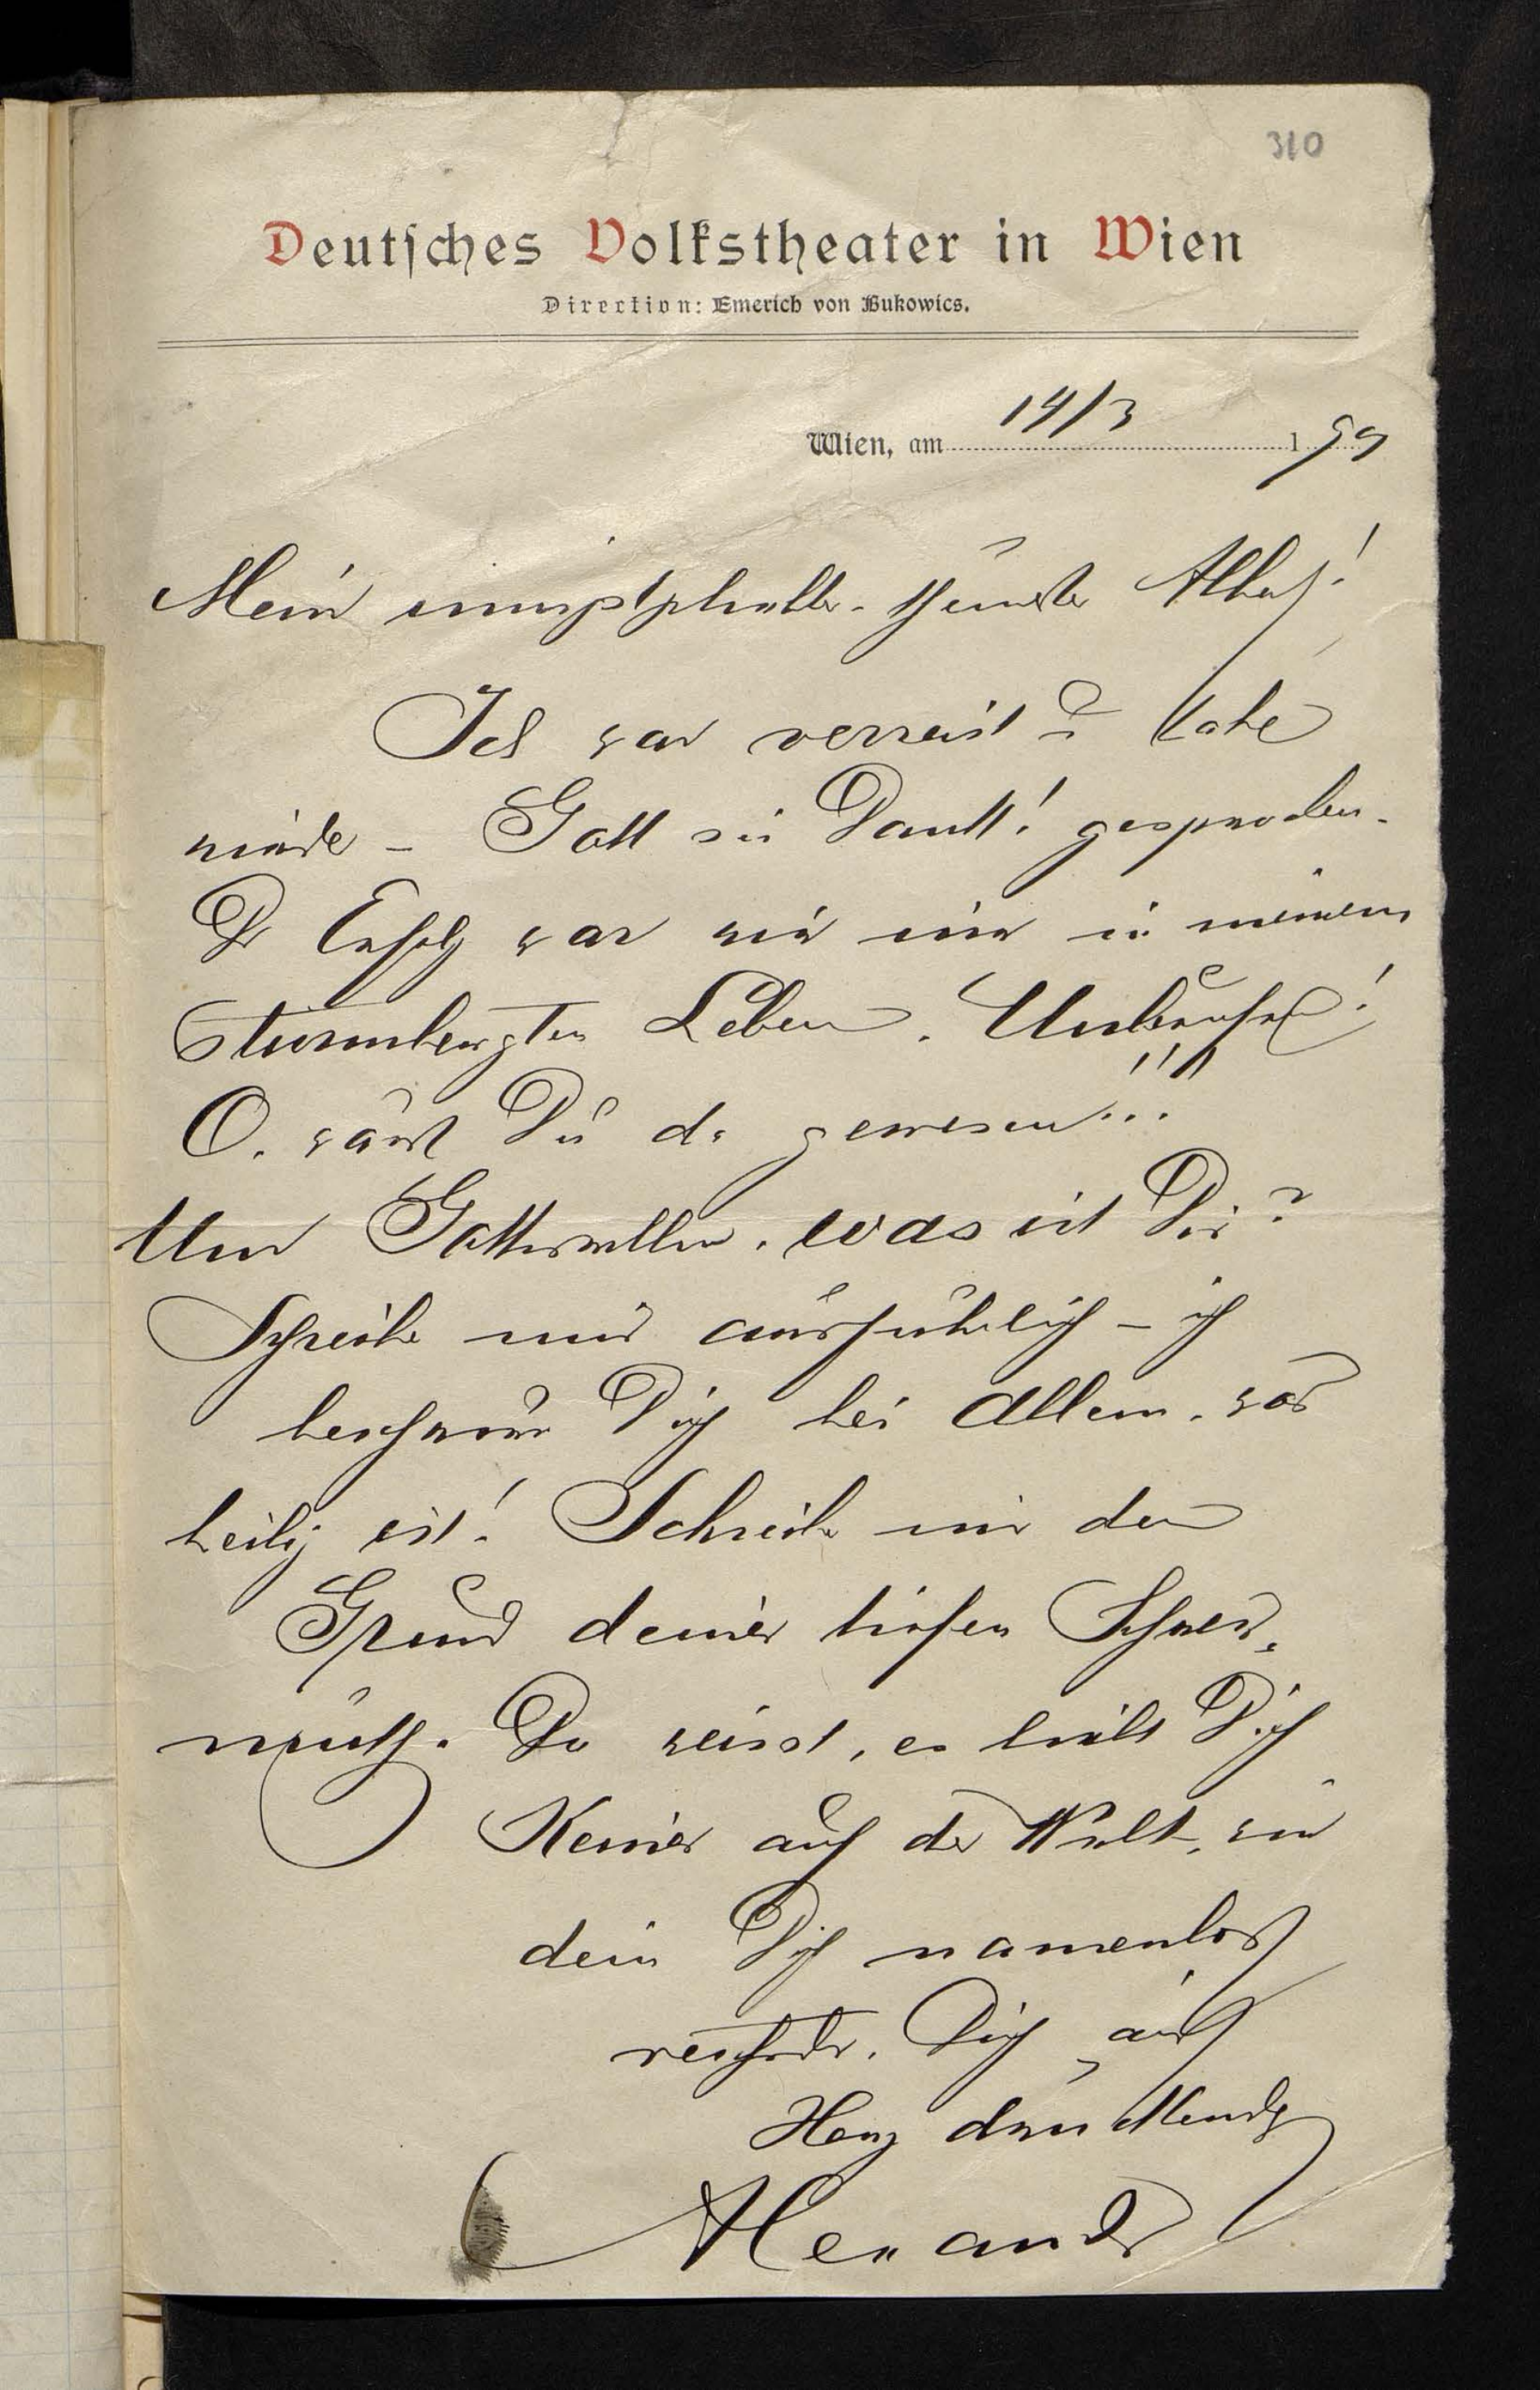 310
Deutsches Volkstheater in Wien
Direction: Emerich von Bukowics.
Wien, am 14/3 199
Mein theuerster Alter!
Ich war verreist u habe
wieder – Gott sei Dank! gesprochen.
Der Erfolg war wie nie in meinem
sturmbewegten Leben. Unberufen!
O, wärst Du da gewesen!!!
Um Gotteswillen, was ist Dir?
Schreibe mir ausführlich – ich
beschwöre Dich bei Allem, was
heilig ist! Schreibe mir den
Grund deiner tiefen Schwer-
muth. Du weisst, es liebt Dich
Keiner auf der Welt, wie
dein Dich namenlos
Dich ans
Herz drückender
Alexander